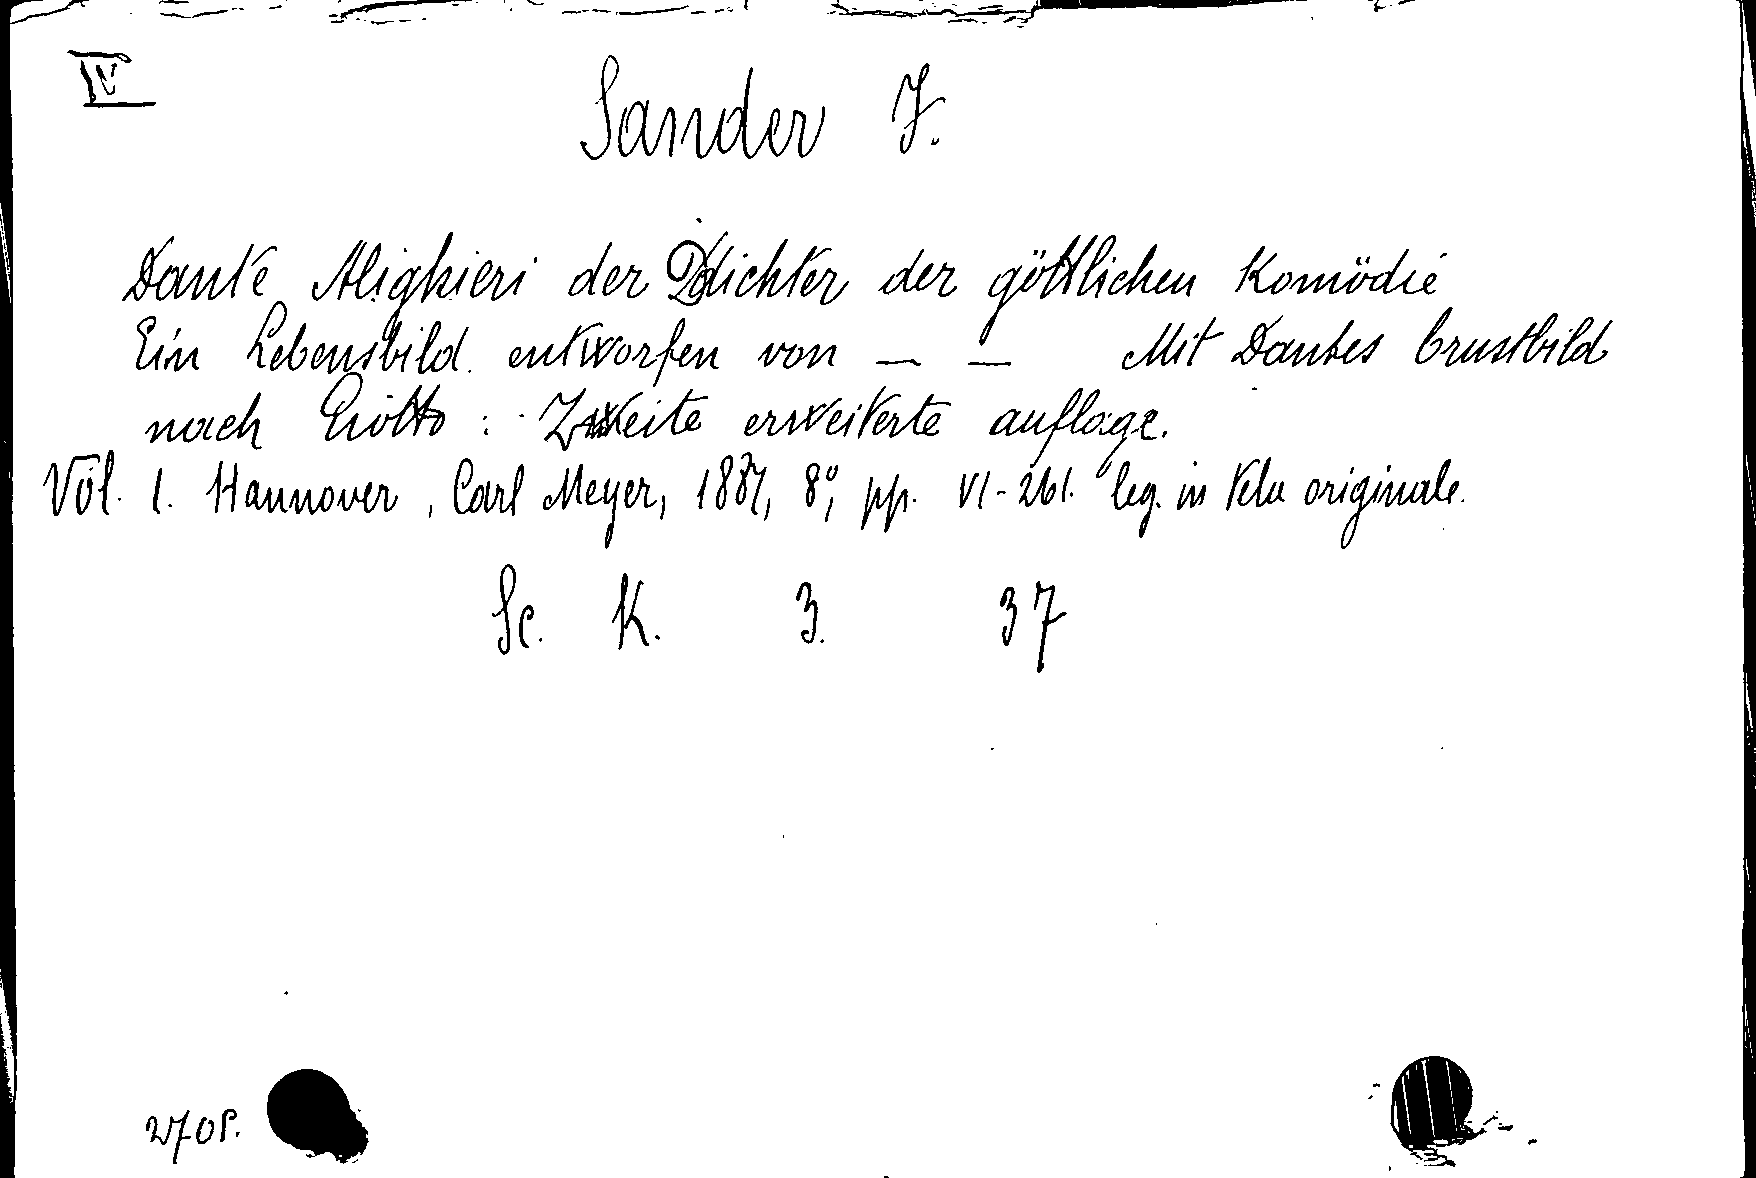 IV
Sander F.
Dante Alighieri der Dichter der göttlichen Komödie
Ein Lebensbild entworfen von — — Mit Dantes brustbild
nach Giotto: Zweite erweiterte auflage.
Vol. 1. Hannover, Carl Meyer, 1887, 8°, pp. VI-261. leg. in tela originale.
Sc. K. 3. 37